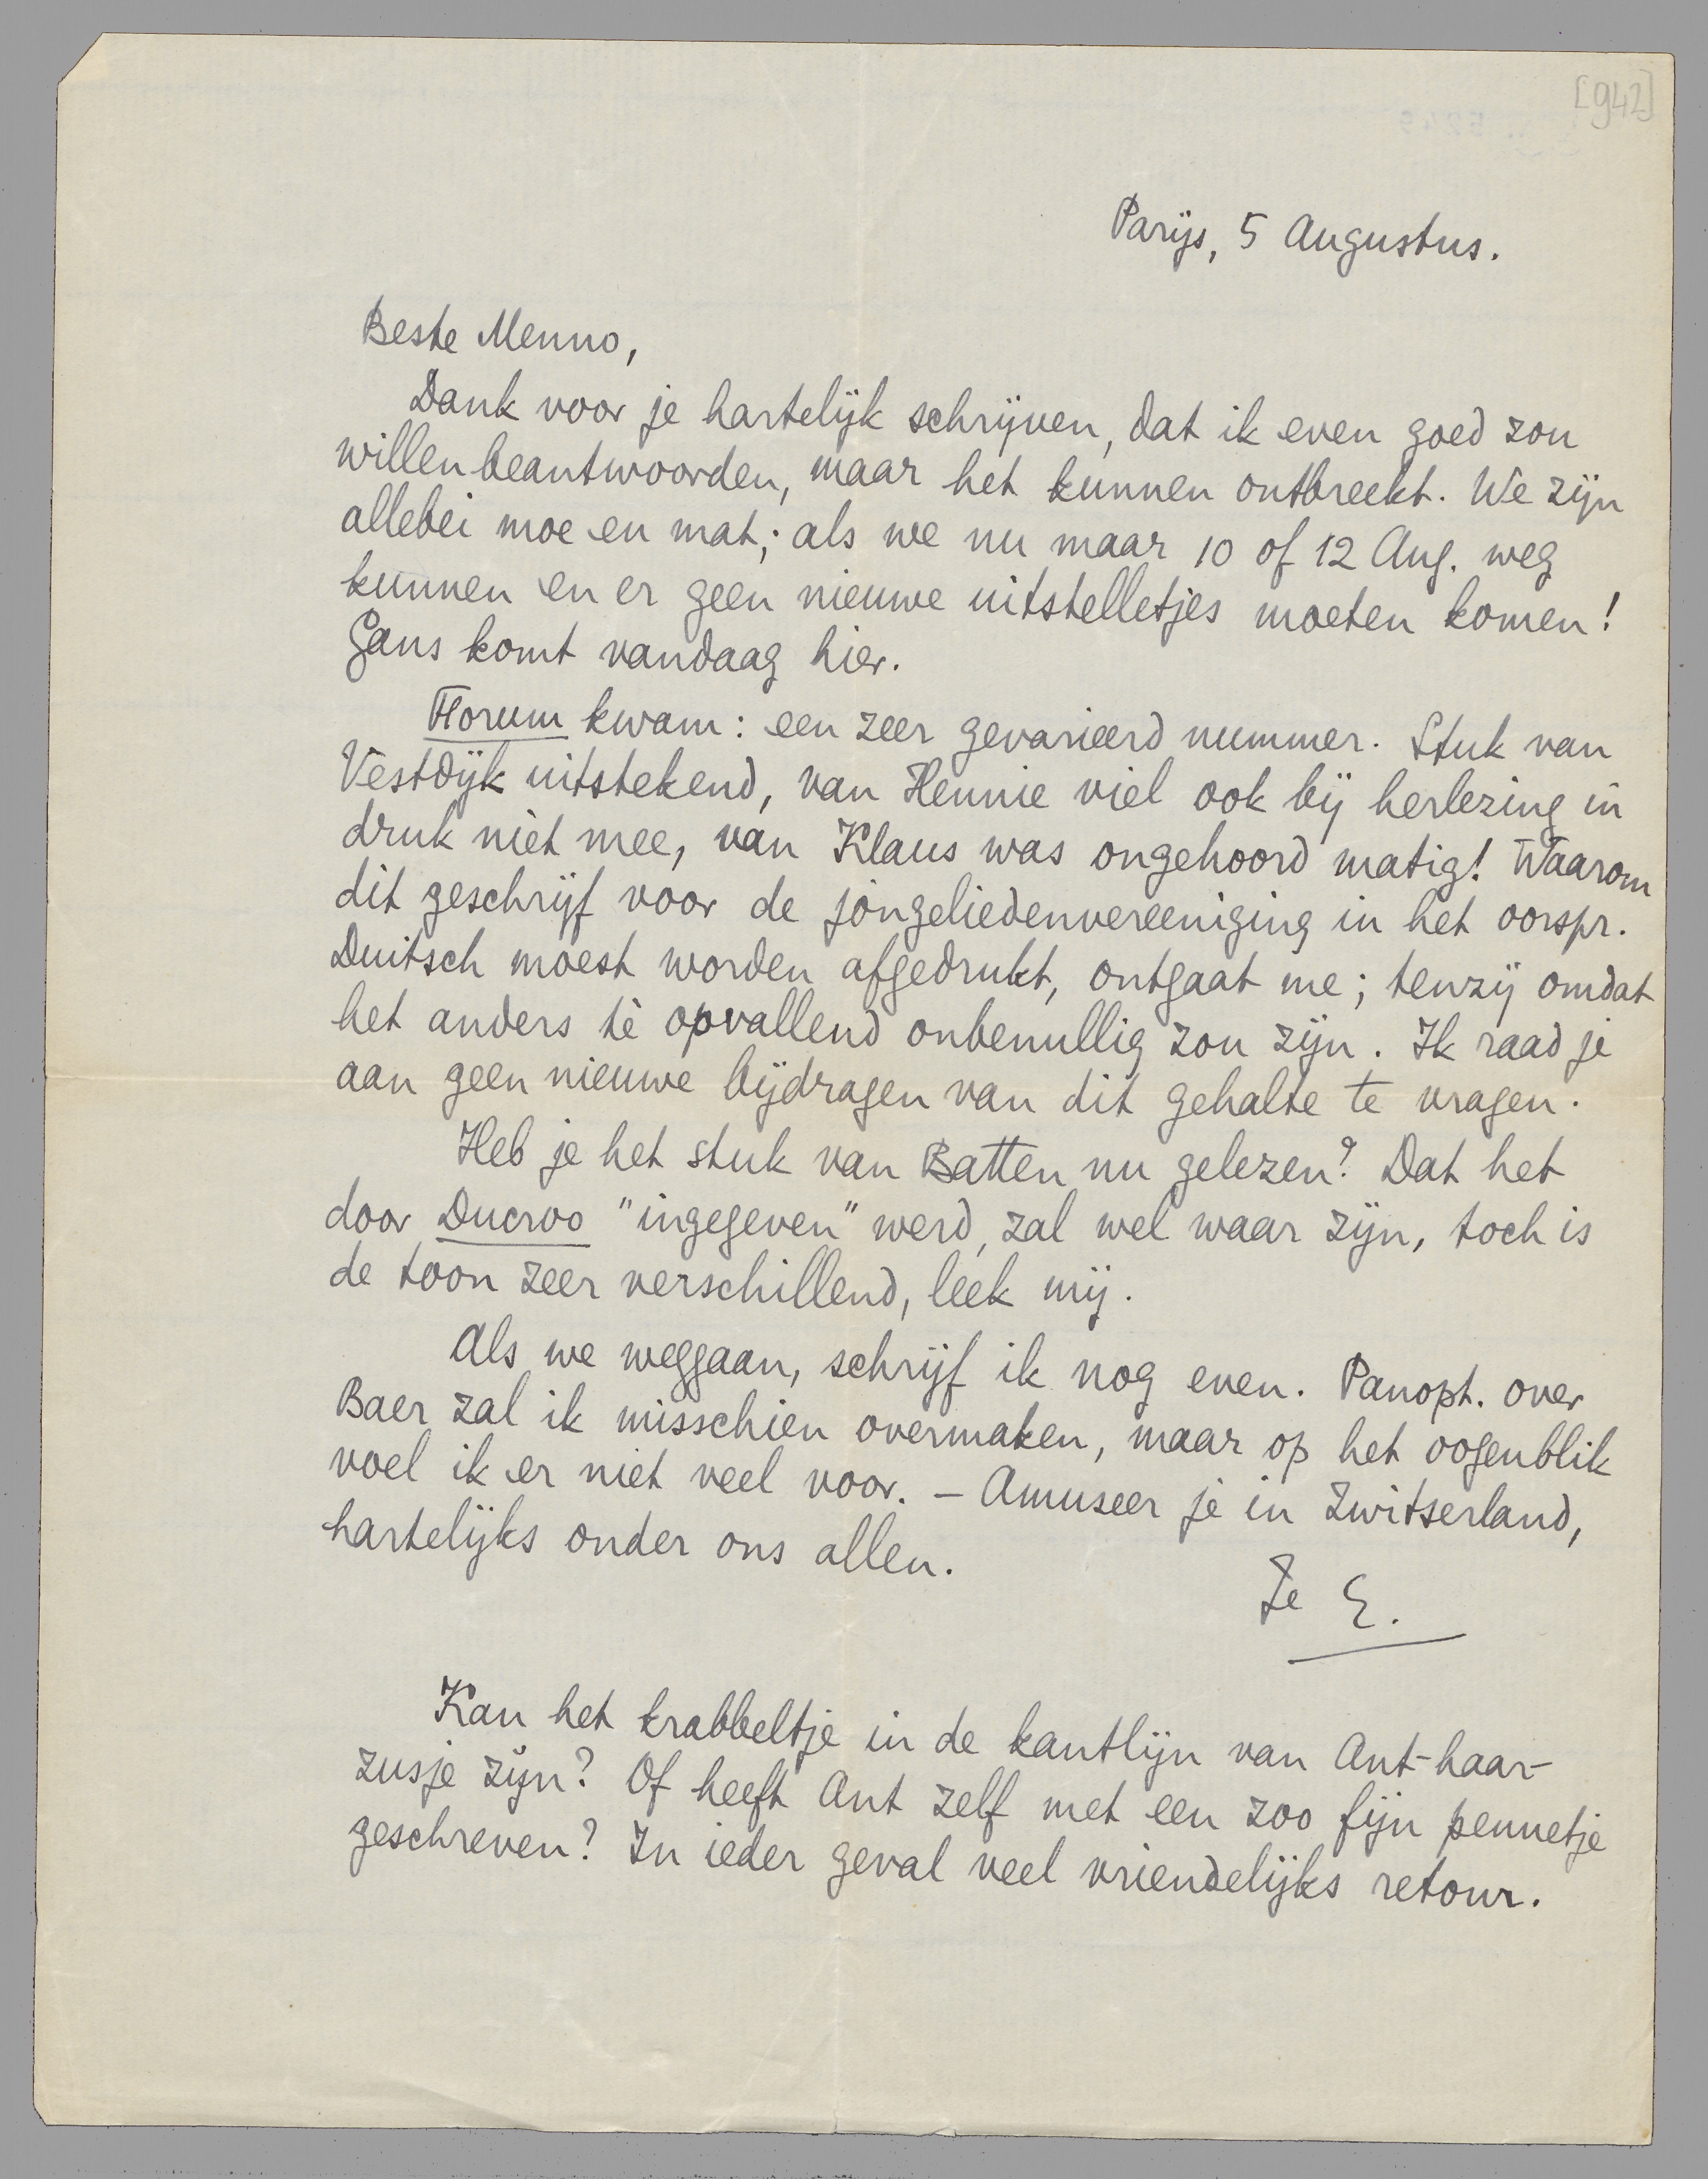 [942]
Parijs, 5 Augustus.
Beste Menno,
Dank voor je hartelijk schrijven, dat ik even goed zou
willen beantwoorden, maar het kunnen ontbreekt. We zijn
allebei moe en mat; als we nu maar 10 of 12 Aug. weg
kunnen en er geen nieuwe uitstelletjes moeten komen!
Gans komt vandaag hier.
Forum kwam: een zeer gevarieerd nummer. Stuk van
Vestdijk uitstekend, van Hennie viel ook bij herlezing in
druk niet mee, van Klaus was ongehoord matig! Waarom
dit geschrijf voor de jongeliedenvereeniging in het oorspr.
Duitsch moest worden afgedrukt, ontgaat me; tenzij omdat
het anders tè opvallend onbenullig zou zijn. Ik raad je
aan geen nieuwe bijdragen van dit gehalte te vragen.
Heb je het stuk van Batten nu gelezen? Dat het
door Ducroo "ingegeven" werd, zal wel waar zijn, toch is
de toon zeer verschillend, leek mij.
Als we weggaan, schrijf ik nog even. Panopt. over
Baer zal ik misschien overmaken, maar op het oogenblik
voel ik er niet veel voor. – Amuseer je in Zwitserland,
hartelijks onder ons allen.
Je E.
Kan het krabbeltje in de kantlijn van Ant-haar-
zusje zijn? Of heeft Ant zelf met een zoo fijn pennetje
geschreven? In ieder geval veel vriendelijks retour.